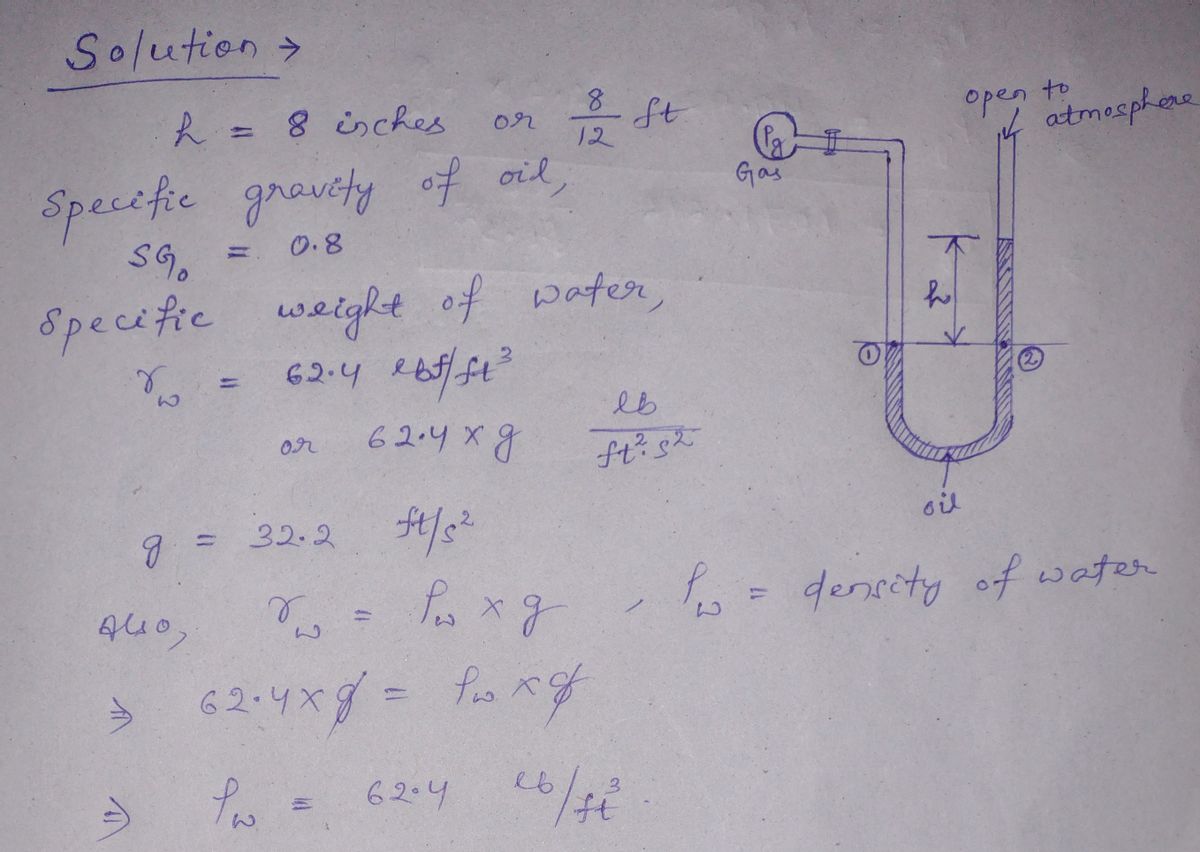 Solution →
h = 8 inches or 8/12 ft
Specific gravity of oil,
SG₀ = 0.8
Specific weight of water,
γ_w = 62.4 lbf/ft³
or 62.4 × g lb/ft²·s²
g = 32.2 ft/s²
Also, γ_w = ρ_w × g , ρ_w = density of water
⇒ 62.4 × g = ρ_w × g
⇒ ρ_w = 62.4 lb/ft³.
open to
atmosphere
Pg
Gas
h
① ②
oil